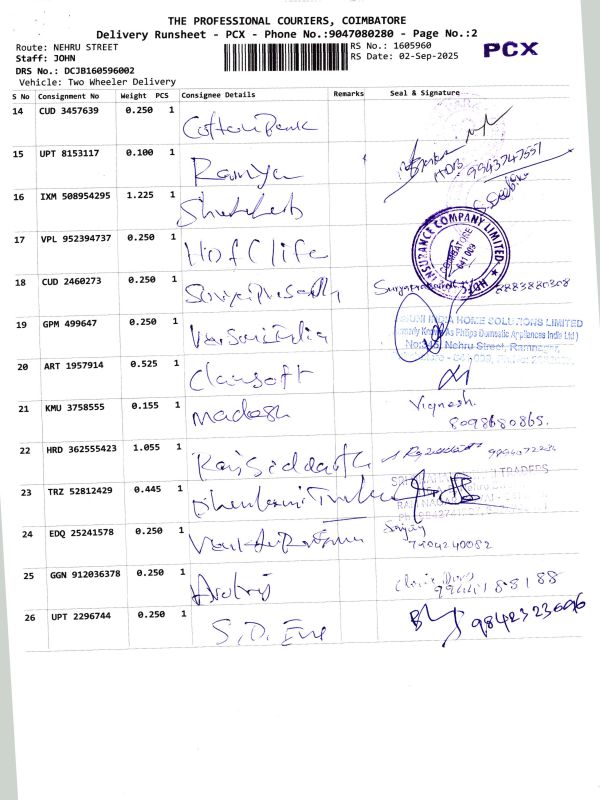 THE PROFESSIONAL COURIERS, COIMBATORE
Delivery Runsheet - PCX - Phone No.:9047080280 - Page No.:2
Route: NEHRU STREET
RS No.: 1605960
PCX
Staff: JOHN
RS Date: 02-Sep-2025
DRS No.: DCJB160596002
Vehicle: Two Wheeler Delivery
S No Consignment No Weight PCS Consignee Details Remarks Seal & Signature
14 CUD 3457639 0.250 1 Cotton Bank
15 UPT 8153117 0.100 1 Ramya
HDB 9943747551
16 IXM 508954295 1.225 1
INSURANCE COMPANY LIMITED
COIMBATORE
641 009
HDFC
17 VPL 952394737 0.250 1 Hdfc life
18 CUD 2460273 0.250 1 Suryaprasath
8883880308
19 GPM 499647 0.250 1 Versuni India
VERSUNI INDIA HOME SOLUTIONS LIMITED
(Formerly Known As Philips Domestic Appliances India Ltd)
Nehru Street, Ramnagar,
20 ART 1957914 0.525 1 Clansoft
21 KMU 3758555 0.155 1 Madesh
Vignesh.
8098680865.
22 HRD 362555423 1.055 1 Raj Siddarth
TRADERS
23 TRZ 52812429 0.445 1
24 EDQ 25241578 0.250 1
Sanjay
7904240082
25 GGN 912036378 0.250 1
26 UPT 2296744 0.250 1 S.D. Eve
9842323696